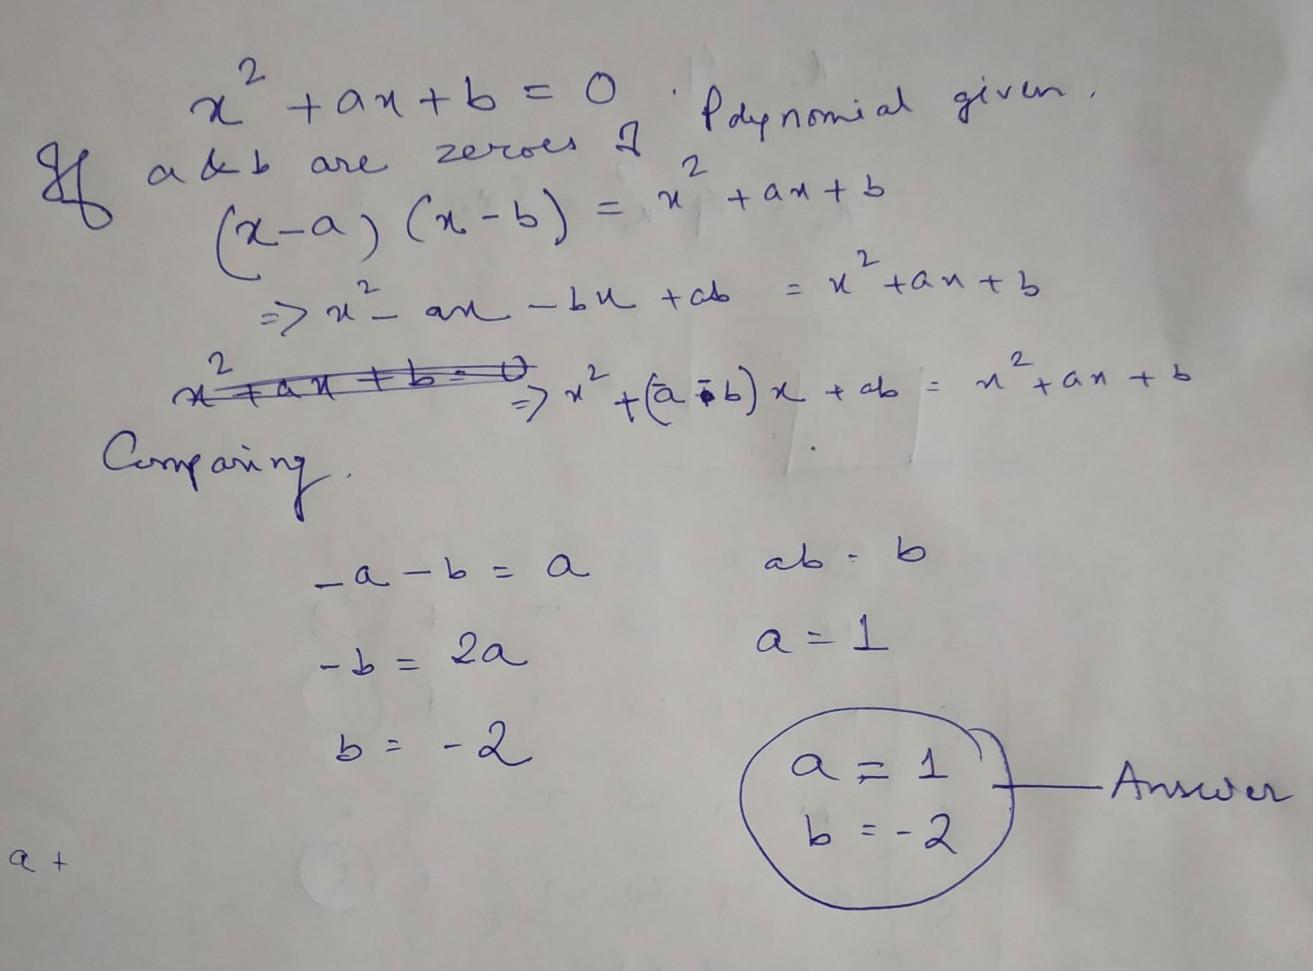 x² + ax + b = 0 . Polynomial given.
If a & b are zeroes of
(x-a) (x-b) = x² + ax + b
=> x² - ax - bx + ab = x² + ax + b
x² + ax + b = 0 => x² + (-a-b) x + ab = x² + ax + b
Comparing.
-a - b = a
ab = b
-b = 2a
a = 1
b = -2
a = 1
b = -2
Answer
a +